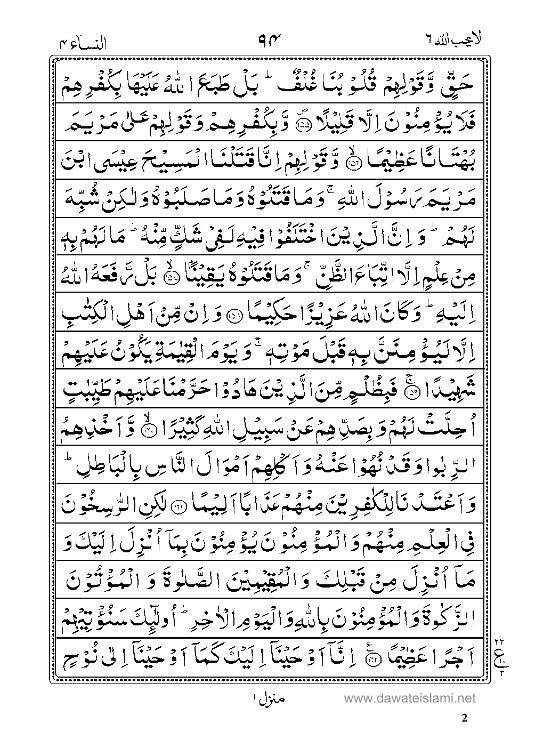 لا یحب الله ٦
٩٤
النساء ٤
حَقٍّ وَّقَوْلِهِمْ قُلُوْبُنَا غُلْفٌ ؕ بَلْ طَبَعَ اللهُ عَلَیْهَا بِكُفْرِهِمْ
فَلَا یُؤْمِنُوْنَ اِلَّا قَلِیْلًا ۝۱۵۵ وَّبِكُفْرِهِمْ وَقَوْلِهِمْ عَلٰی مَرْیَمَ
بُهْتَانًا عَظِیْمًا ۝۱۵۶ وَّقَوْلِهِمْ اِنَّا قَتَلْنَا الْمَسِیْحَ عِیْسَی ابْنَ
مَرْیَمَ رَسُوْلَ اللهِ ۚ وَمَا قَتَلُوْهُ وَمَا صَلَبُوْهُ وَلٰكِنْ شُبِّهَ
لَهُمْ ؕ وَاِنَّ الَّذِیْنَ اخْتَلَفُوْا فِیْهِ لَفِیْ شَكٍّ مِّنْهُ ؕ مَا لَهُمْ بِهٖ
مِنْ عِلْمٍ اِلَّا اتِّبَاعَ الظَّنِّ ۚ وَمَا قَتَلُوْهُ یَقِیْنًۢا ۝۱۵۷ بَلْ رَّفَعَهُ اللهُ
اِلَیْهِ ؕ وَكَانَ اللهُ عَزِیْزًا حَكِیْمًا ۝۱۵۸ وَاِنْ مِّنْ اَهْلِ الْكِتٰبِ
اِلَّا لَیُؤْمِنَنَّ بِهٖ قَبْلَ مَوْتِهٖ ۚ وَیَوْمَ الْقِیٰمَةِ یَكُوْنُ عَلَیْهِمْ
شَهِیْدًا ۝۱۵۹ فَبِظُلْمٍ مِّنَ الَّذِیْنَ هَادُوْا حَرَّمْنَا عَلَیْهِمْ طَیِّبٰتٍ
اُحِلَّتْ لَهُمْ وَبِصَدِّهِمْ عَنْ سَبِیْلِ اللهِ كَثِیْرًا ۝۱۶۰ وَّاَخْذِهِمُ
الرِّبٰوا وَقَدْ نُهُوْا عَنْهُ وَاَكْلِهِمْ اَمْوَالَ النَّاسِ بِالْبَاطِلِ ؕ
وَاَعْتَدْنَا لِلْكٰفِرِیْنَ مِنْهُمْ عَذَابًا اَلِیْمًا ۝۱۶۱ لٰكِنِ الرّٰسِخُوْنَ
فِی الْعِلْمِ مِنْهُمْ وَالْمُؤْمِنُوْنَ یُؤْمِنُوْنَ بِمَاۤ اُنْزِلَ اِلَیْكَ وَ
مَاۤ اُنْزِلَ مِنْ قَبْلِكَ وَالْمُقِیْمِیْنَ الصَّلٰوةَ وَالْمُؤْتُوْنَ
الزَّكٰوةَ وَالْمُؤْمِنُوْنَ بِاللهِ وَالْیَوْمِ الْاٰخِرِ ؕ اُولٰٓئِكَ سَنُؤْتِیْهِمْ
اَجْرًا عَظِیْمًا ۝۱۶۲ اِنَّاۤ اَوْحَیْنَاۤ اِلَیْكَ كَمَاۤ اَوْحَیْنَاۤ اِلٰی نُوْحٍ
۲۲
ع
۱۰
۲
منزل ۱
www.dawateislami.net
2